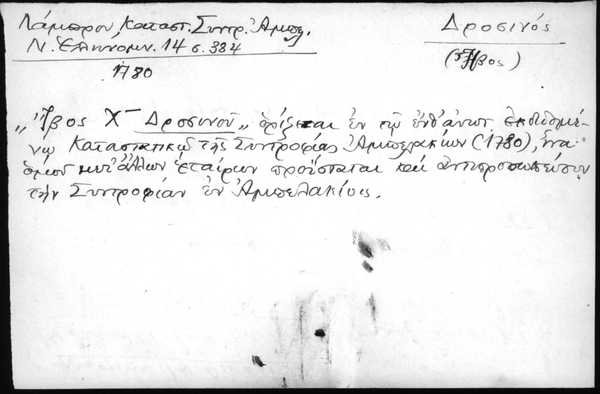 Λάμπρου, Καταστ. Συντρ. Ἀμπελ.
Ν. Ἑλληνομν. 14 σ. 384
1780
Δροσινός
(Ἦβος)
„Ἦβος Χ" Δροσινοῦ„ ὁρίζεται ἐν τῷ ἐνθ' ἀνωτ. ἐκδιδομέ-
νῳ Καταστατικῷ τῆς Συντροφίας Ἀμπελακίων (1780), ἵνα
ὁμοῦ μετ' ἄλλων ἑταίρων προΐσταται καὶ ἀντιπροσωπεύσῃ
τὴν Συντροφίαν ἐν Ἀμπελακίοις.